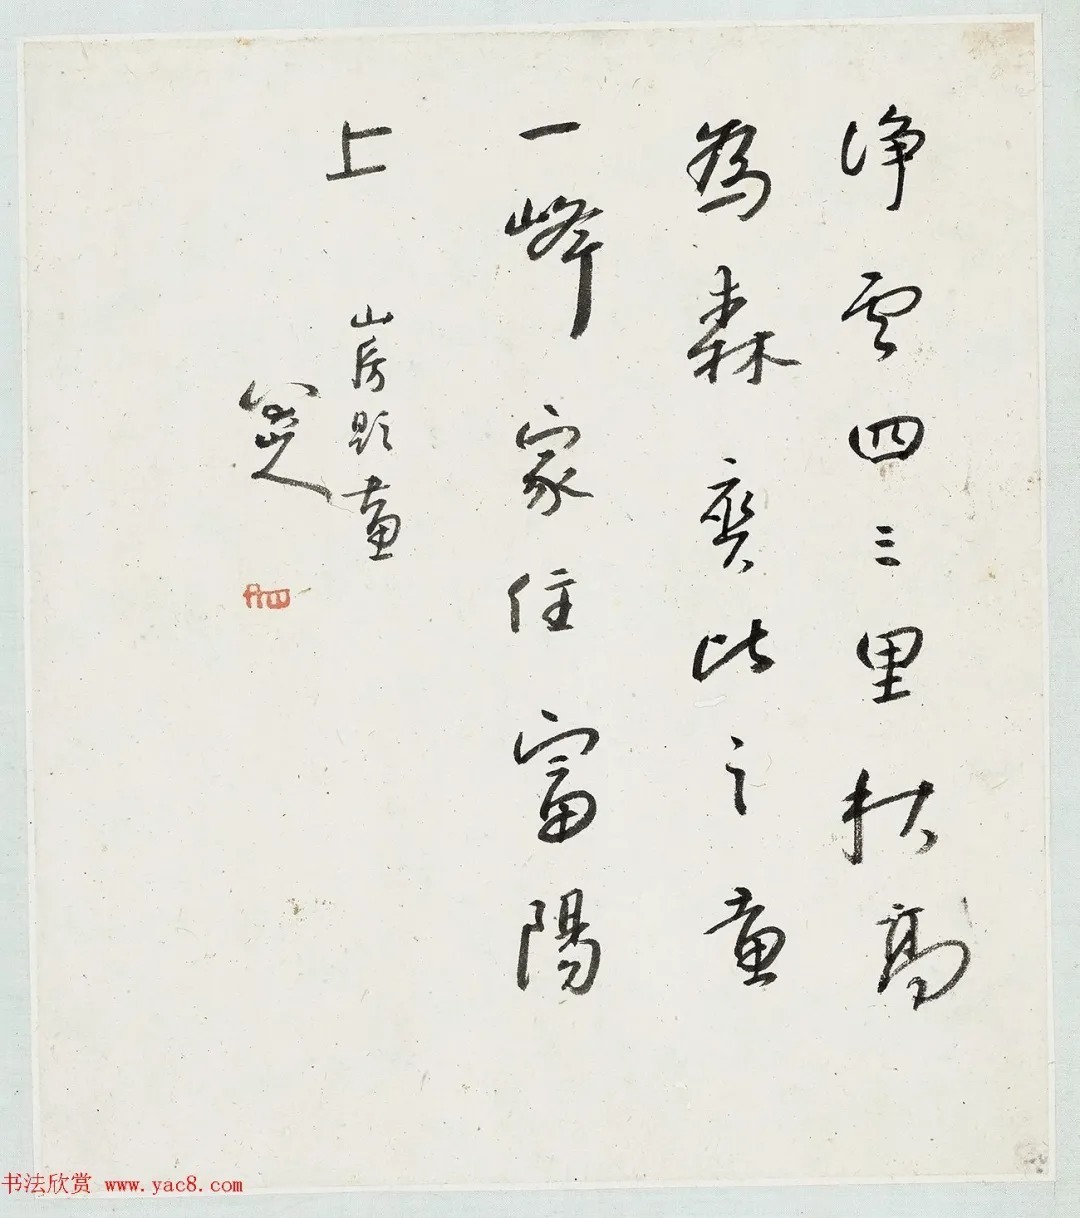 净雲四三里秋高
為森爽比之畫
一峰家住富陽
上
山房題畫
八大山人
书法欣赏 www.yac8.com